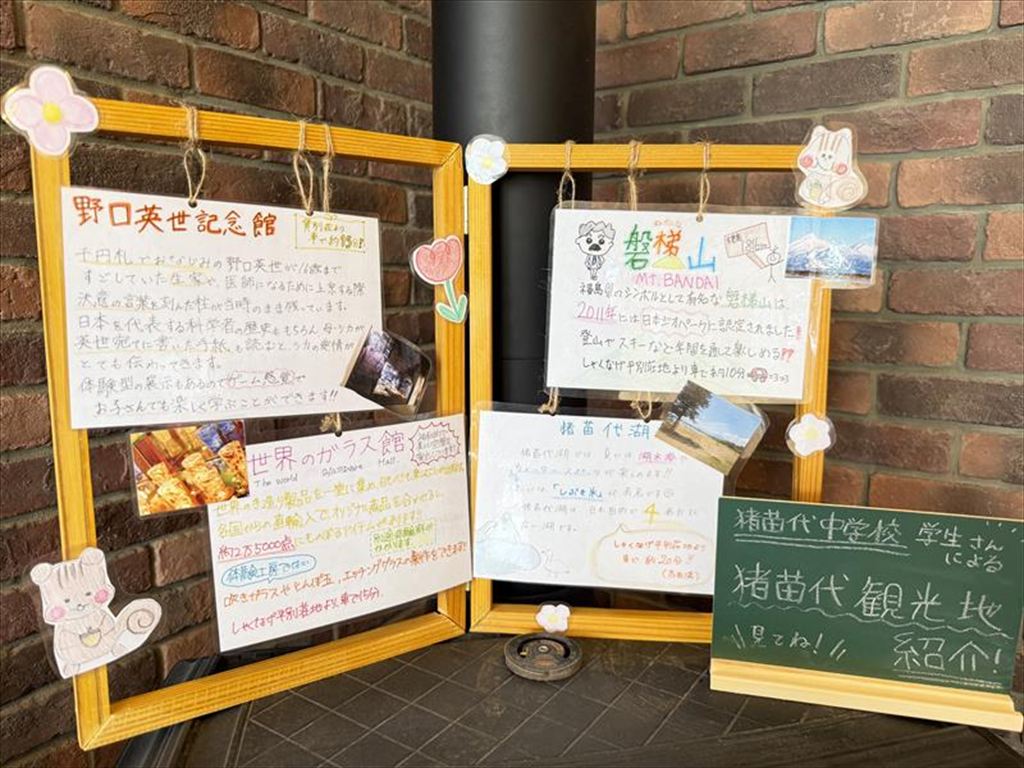 野口英世記念館
千円札でおなじみの野口英世が16歳まで
すごしていた生家や、医師になるために上京する際
決意の言葉を刻んだ柱が当時のまま残っています。
日本を代表する科学者の歴史はもちろん 母・シカが
英世宛てに書いた手紙も読むと、シカの愛情が
とても伝わってきます。
体験型の展示もあるのでゲーム感覚で
お子さんでも楽しく学ぶことができます!!
世界のガラス館
The world Glassware Hall.
世界の手造り製品を一堂に集め
各国からの直輸入でオリジナル商品を含めると、
約2万5000点にものぼるアイテムがあります。
体験工房では
吹きガラスやとんぼ玉、エッチンググラスの製作もできます!
しゃくなげ平別荘地より車で15分。
磐梯山
MT.BANDAI
福島県のシンボルとして有名な磐梯山は
2011年には日本ジオパークに認定されました!!
登山やスキーなど年間を通して楽しめる!?
しゃくなげ平別荘地より車で約10分
猪苗代湖
猪苗代湖では 夏には 湖水浴や
「しぶき氷」
4
しゃくなげ平別荘地より
車で 約20分!!
猪苗代中学校 学生さん
による
猪苗代観光地
紹介!
見てね!